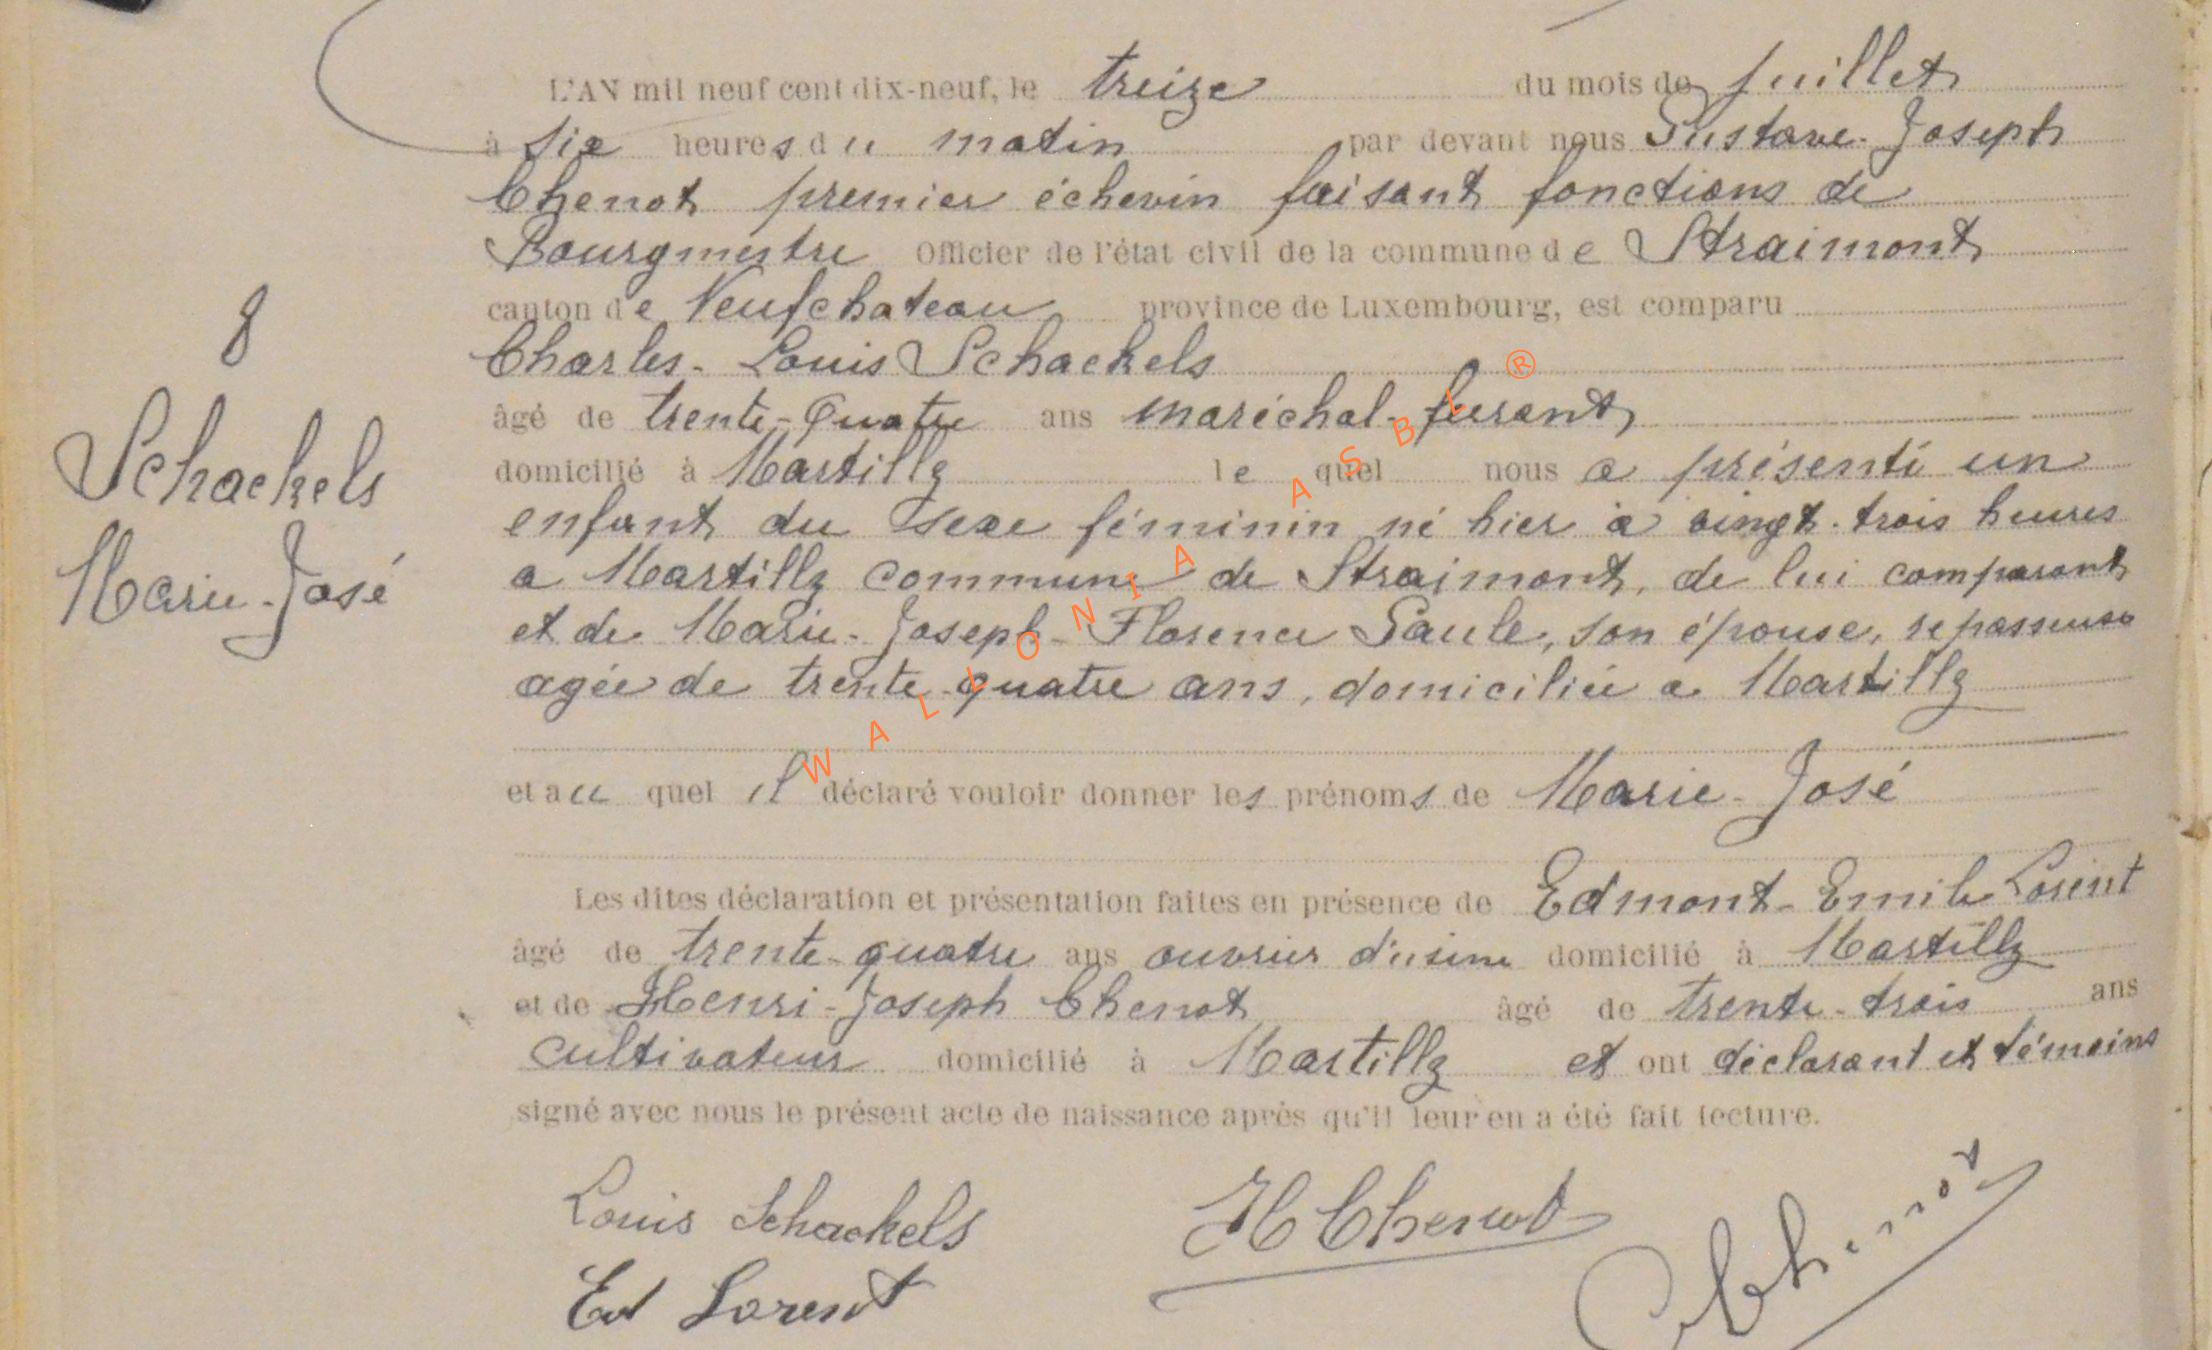 L'AN mil neuf cent dix-neuf, le treize du mois de juillet
à six heures du matin par devant nous Gustave-Joseph
Chenot premier échevin faisant fonctions de
Bourgmestre Officier de l'état civil de la commune de Straimont
canton de Neufchateau province de Luxembourg, est comparu
Charles-Louis Schackels
âgé de trente-quatre ans maréchal-ferant
domicilié à Martilly le quel nous a présenté un
enfant du sexe féminin né hier à vingt-trois heures
a Martilly commune de Straimont, de lui comparant
et de Marie-Joseph-Florence Saule, son épouse, repasseuse
agée de trente-quatre ans, domiciliée a Martilly
et au quel il déclaré vouloir donner les prénoms de Marie-José
Les dites déclaration et présentation faites en présence de Edmont-Emile Lorent
âgé de trente-quatre ans ouvrier d'usine domicilié à Martilly
et de Henri-Joseph Chenot âgé de trente-trois ans
cultivateur domicilié à Martilly et ont déclarant et témoins
signé avec nous le présent acte de naissance après qu'il leur en a été fait lecture.
8
Schackels
Marie-José
Louis Schackels
H Chenot
Chenot
Ed Lorent
WALLONIA ASBL ®